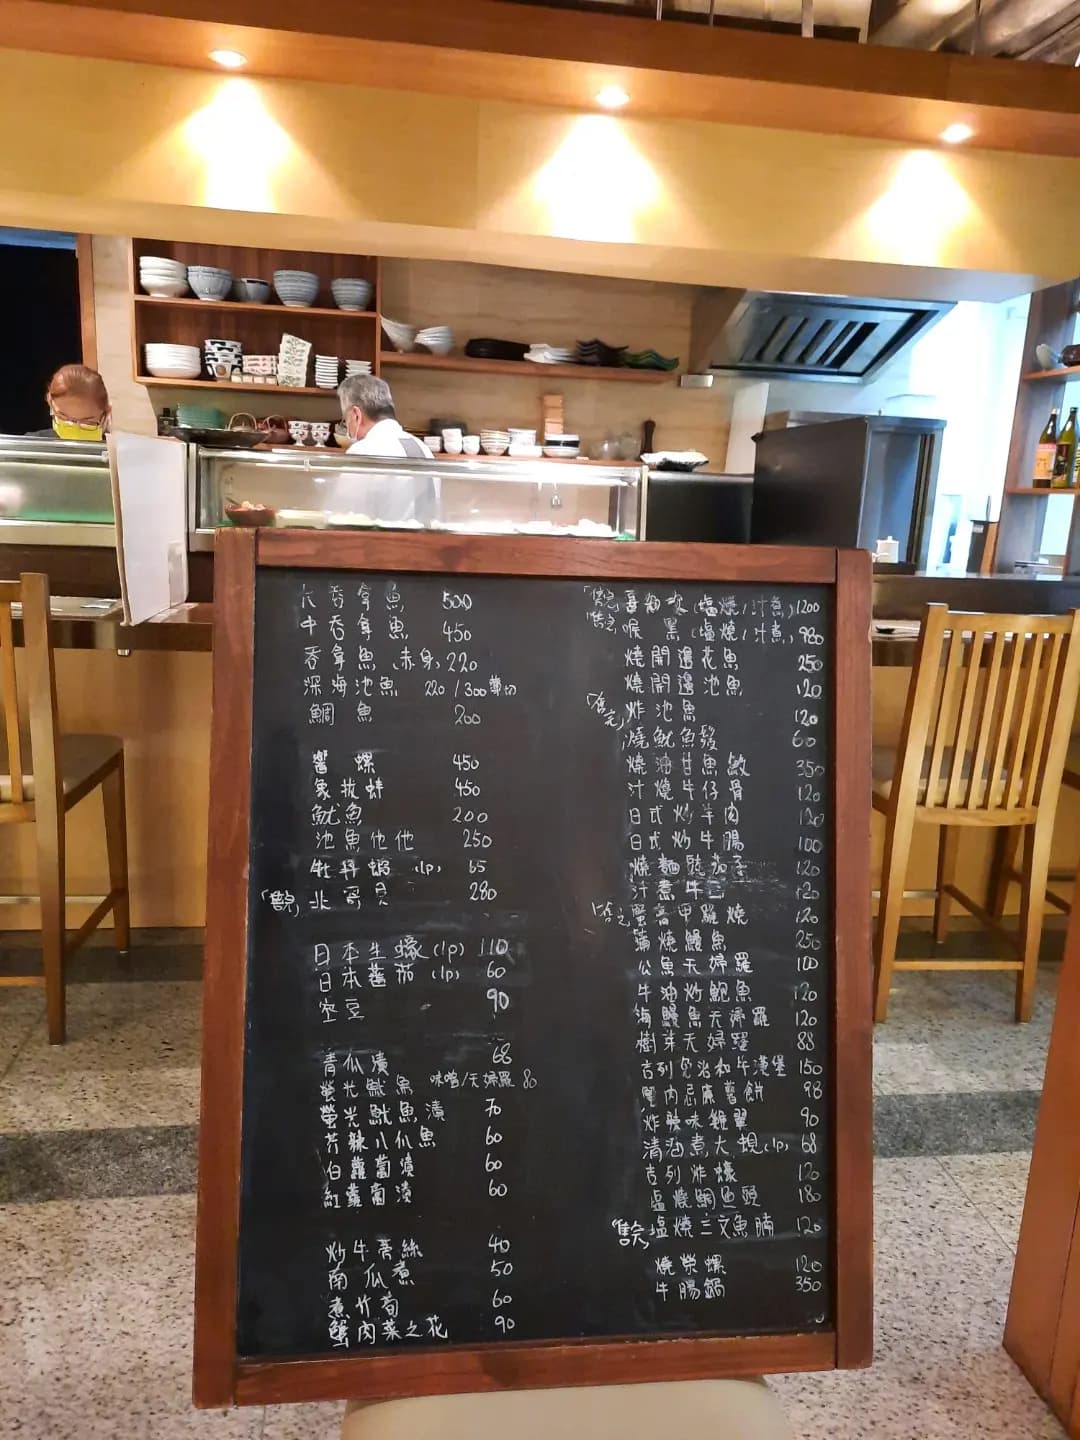 大吞拿魚 500
中吞拿魚 450
吞拿魚(赤身)220
深海池魚 220/300薄切
鯛魚 200
響螺 450
象拔蚌 450
魷魚 200
池魚他他 250
牡丹蝦(1p) 65
「售完」北寄貝 280
日本生蠔(1p) 110
日本蕃茄(1p) 60
空豆 90
青瓜漬 68
螢光魷魚 味噌/天婦羅 80
螢光魷魚漬 70
芥辣八爪魚 60
白蘿蔔漬 60
紅蘿蔔漬 60
炒牛蒡絲 40
南瓜煮 50
煮竹荀 60
蟹肉菜之花 90
「售完」喜知次(塩燒/汁煮)1200
「售完」喉黑(塩燒/汁煮)980
燒開邊花魚 250
燒開邊池魚 120
「售完」炸池魚 120
燒魷魚鬚 60
燒油甘魚鮫 350
汁燒牛仔骨 120
日式炒羊肉 120
日式炒牛腸 100
燒麵豉茄子 120
汁煮牛 120
「售完」蟹膏甲羅燒 120
蒲燒鰻魚 250
公魚天婦羅 100
牛油炒鮑魚 120
海鰻魚天婦羅 120
樹芽天婦羅 88
吉列免治和牛漢堡 150
蟹肉忌廉薯餅 98
炸辣味雞翼 90
清酒煮大蜆(1p) 68
吉列炸蠔 120
塩燒鯛魚頭 180
「售完」塩燒三文魚腩 120
燒榮螺 120
牛腸鍋 350